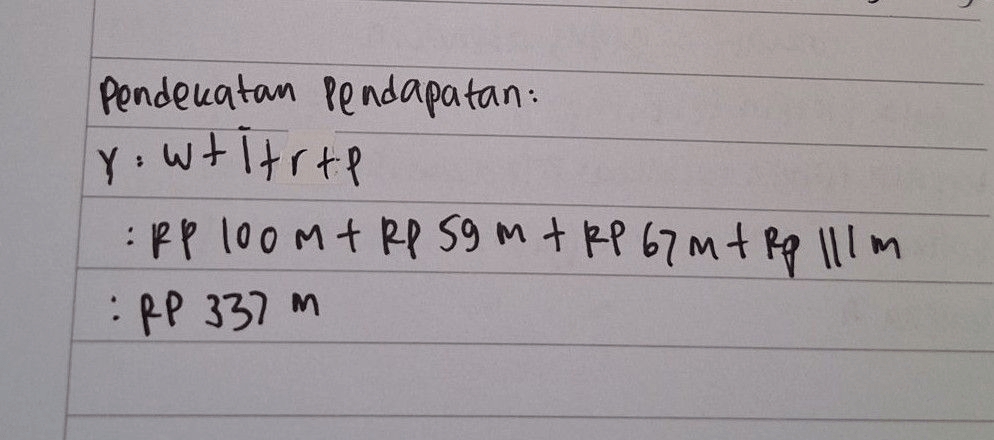 Pendekatan Pendapatan:
Y : w + i + r + p
: RP 100 M + RP 59 M + RP 67 M + Rp 111 M
: RP 337 M